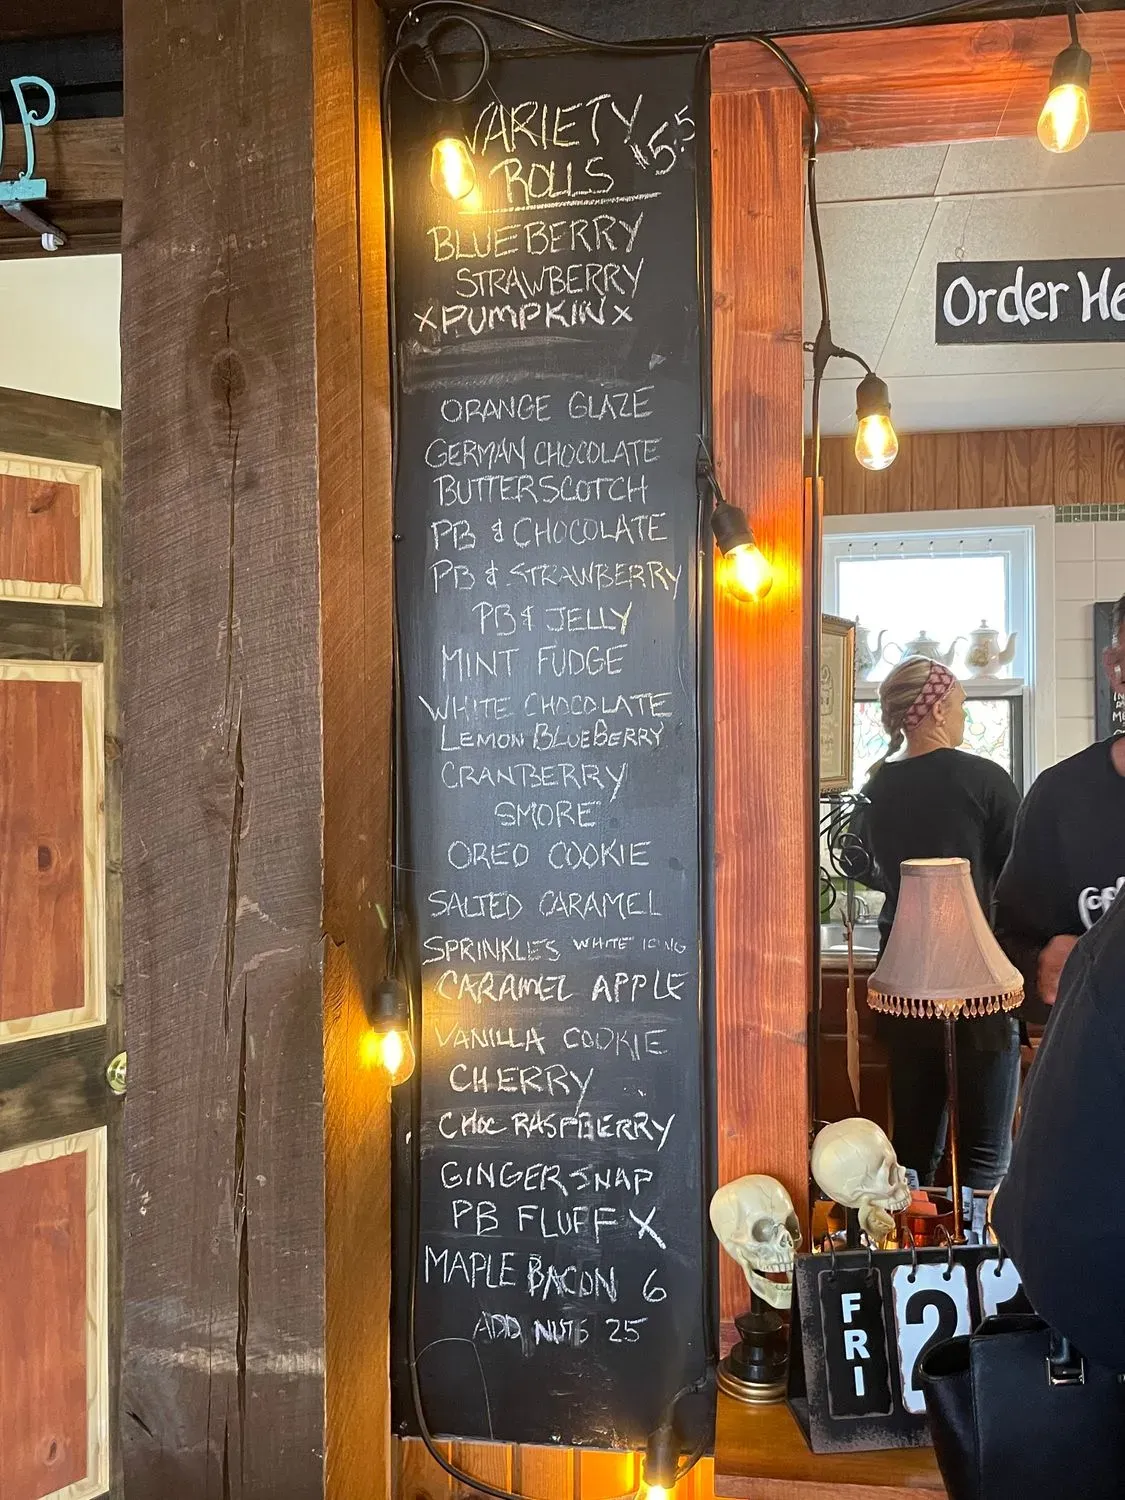 VARIETY
ROLLS $5.5
BLUEBERRY
STRAWBERRY
XPUMPKINX
ORANGE GLAZE
GERMAN CHOCOLATE
BUTTERSCOTCH
PB & CHOCOLATE
PB & STRAWBERRY
PB & JELLY
MINT FUDGE
WHITE CHOCOLATE
LEMON BLUEBERRY
CRANBERRY
SMORE
OREO COOKIE
SALTED CARAMEL
SPRINKLES WHITE ICING
CARAMEL APPLE
VANILLA COOKIE
CHERRY
CHOC RASPBERRY
GINGERSNAP
PB FLUFF X
MAPLE BACON 6
ADD NUTS 25
Order He
FRI
2